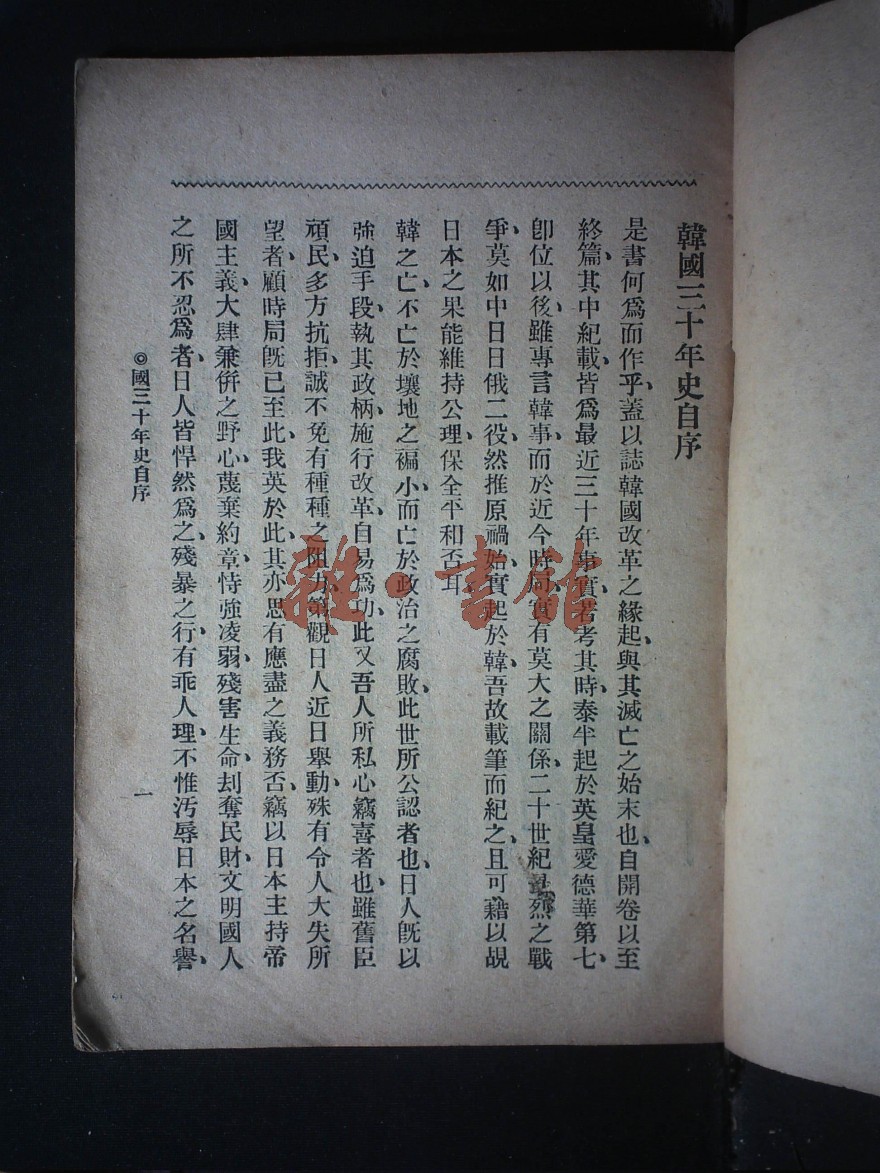 韓國三十年史自序
是書何爲而作乎、蓋以誌韓國改革之緣起、與其滅亡之始末也、自開卷以至
終篇、其中紀載、皆爲最近三十年事實、若考其時、泰半起於英皇愛德華第七、
卽位以後、雖專言韓事、而於近今時局、實有莫大之關係、二十世紀最烈之戰
爭、莫如中日日俄二役、然推原禍始、實起於韓、吾故載筆而紀之、且可藉以覘
日本之果能維持公理、保全平和否耳
韓之亡、不亡於壤地之褊小、而亡於政治之腐敗、此世所公認者也、日人旣以
強迫手段、執其政柄、施行改革、自易爲功、此又吾人所私心竊喜者也、雖舊臣
頑民、多方抗拒、誠不免有種種之阻力、第觀日人近日舉動、殊有令人大失所
望者、顧時局旣已至此、我英於此、其亦思有應盡之義務否、竊以日本主持帝
國主義、大肆兼倂之野心、蔑棄約章、恃強凌弱、殘害生命、刦奪民財、文明國人
之所不忍爲者、日人皆悍然爲之、殘暴之行、有乖人理、不惟汚辱日本之名譽、
◎國三十年史自序
一
雜·書館